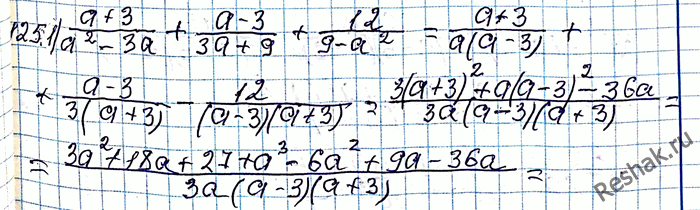 1251) (a+3)/(a² - 3a) + (a-3)/(3a+9) + 12/(9-a²) = (a+3)/(a(a-3)) +
+ (a-3)/(3(a+3)) - 12/((a-3)(a+3)) = (3(a+3)² + a(a-3)² - 36a)/(3a(a-3)(a+3)) =
= (3a² + 18a + 27 + a³ - 6a² + 9a - 36a)/(3a(a-3)(a+3)) =
Reshak.ru